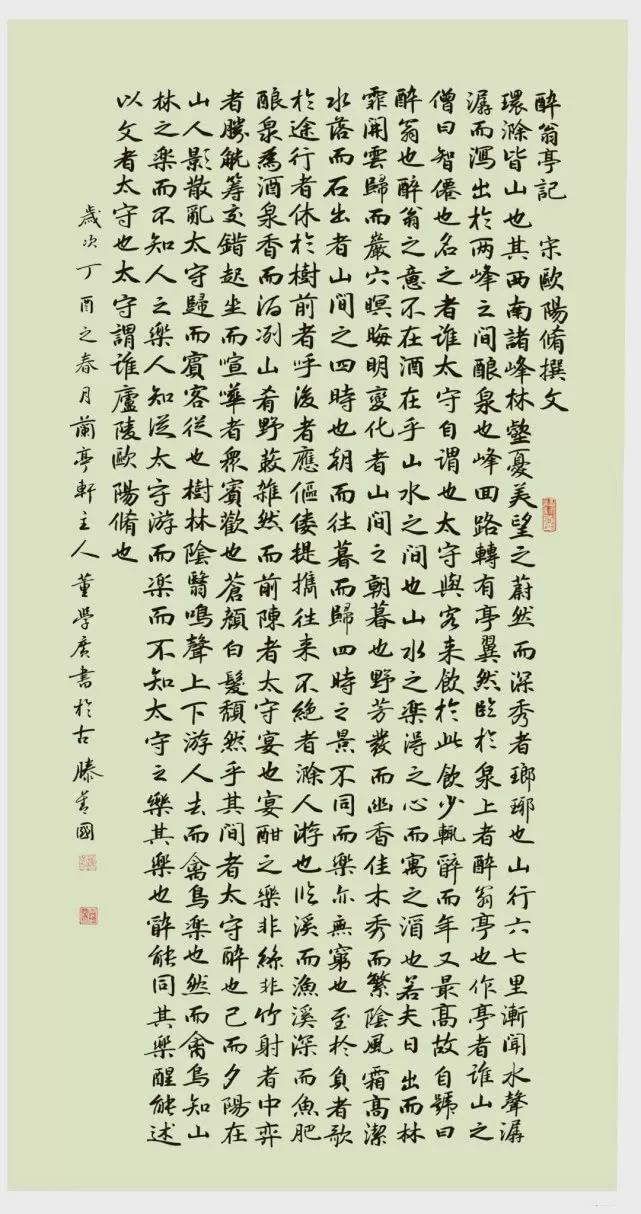 醉翁亭記　宋歐陽脩撰文
環滁皆山也其西南諸峰林壑憂美望之蔚然而深秀者瑯琊也山行六七里漸聞水聲潺
潺而瀉出於两峰之間酿泉也峰回路轉有亭翼然臨於泉上者醉翁亭也作亭者誰山之
僧曰智僊也名之者誰太守自謂也太守與客来飲於此飲少輒醉而年又最高故自號曰
醉翁也醉翁之意不在酒在乎山水之间也山水之楽得之心而寓之酒也若夫日出而林
霏開雲歸而巖穴暝晦明變化者山间之朝暮也野芳發而幽香佳木秀而繁陰風霜高潔
水落而石出者山间之四時也朝而往暮而歸四時之景不同而樂亦無窮也至於負者歌
於途行者休於樹前者呼後者應傴僂提攜往来不絕者滁人游也臨溪而漁溪深而魚肥
酿泉為酒泉香而酒冽山肴野蔌雜然而前陳者太守宴也宴酣之樂非絲非竹射者中弈
者勝觥籌交錯起坐而喧嘩者衆賓歡也蒼顏白髮頹然乎其间者太守醉也已而夕陽在
山人影散亂太守歸而賓客從也樹林陰翳鳴聲上下游人去而禽鳥楽也然而禽鳥知山
林之楽而不知人之樂人知從太守游而楽而不知太守之樂其樂也醉能同其樂醒能述
以文者太守也太守謂誰廬陵歐陽脩也
歲次丁酉之春月蘭亭軒主人董學廣書於古滕善國